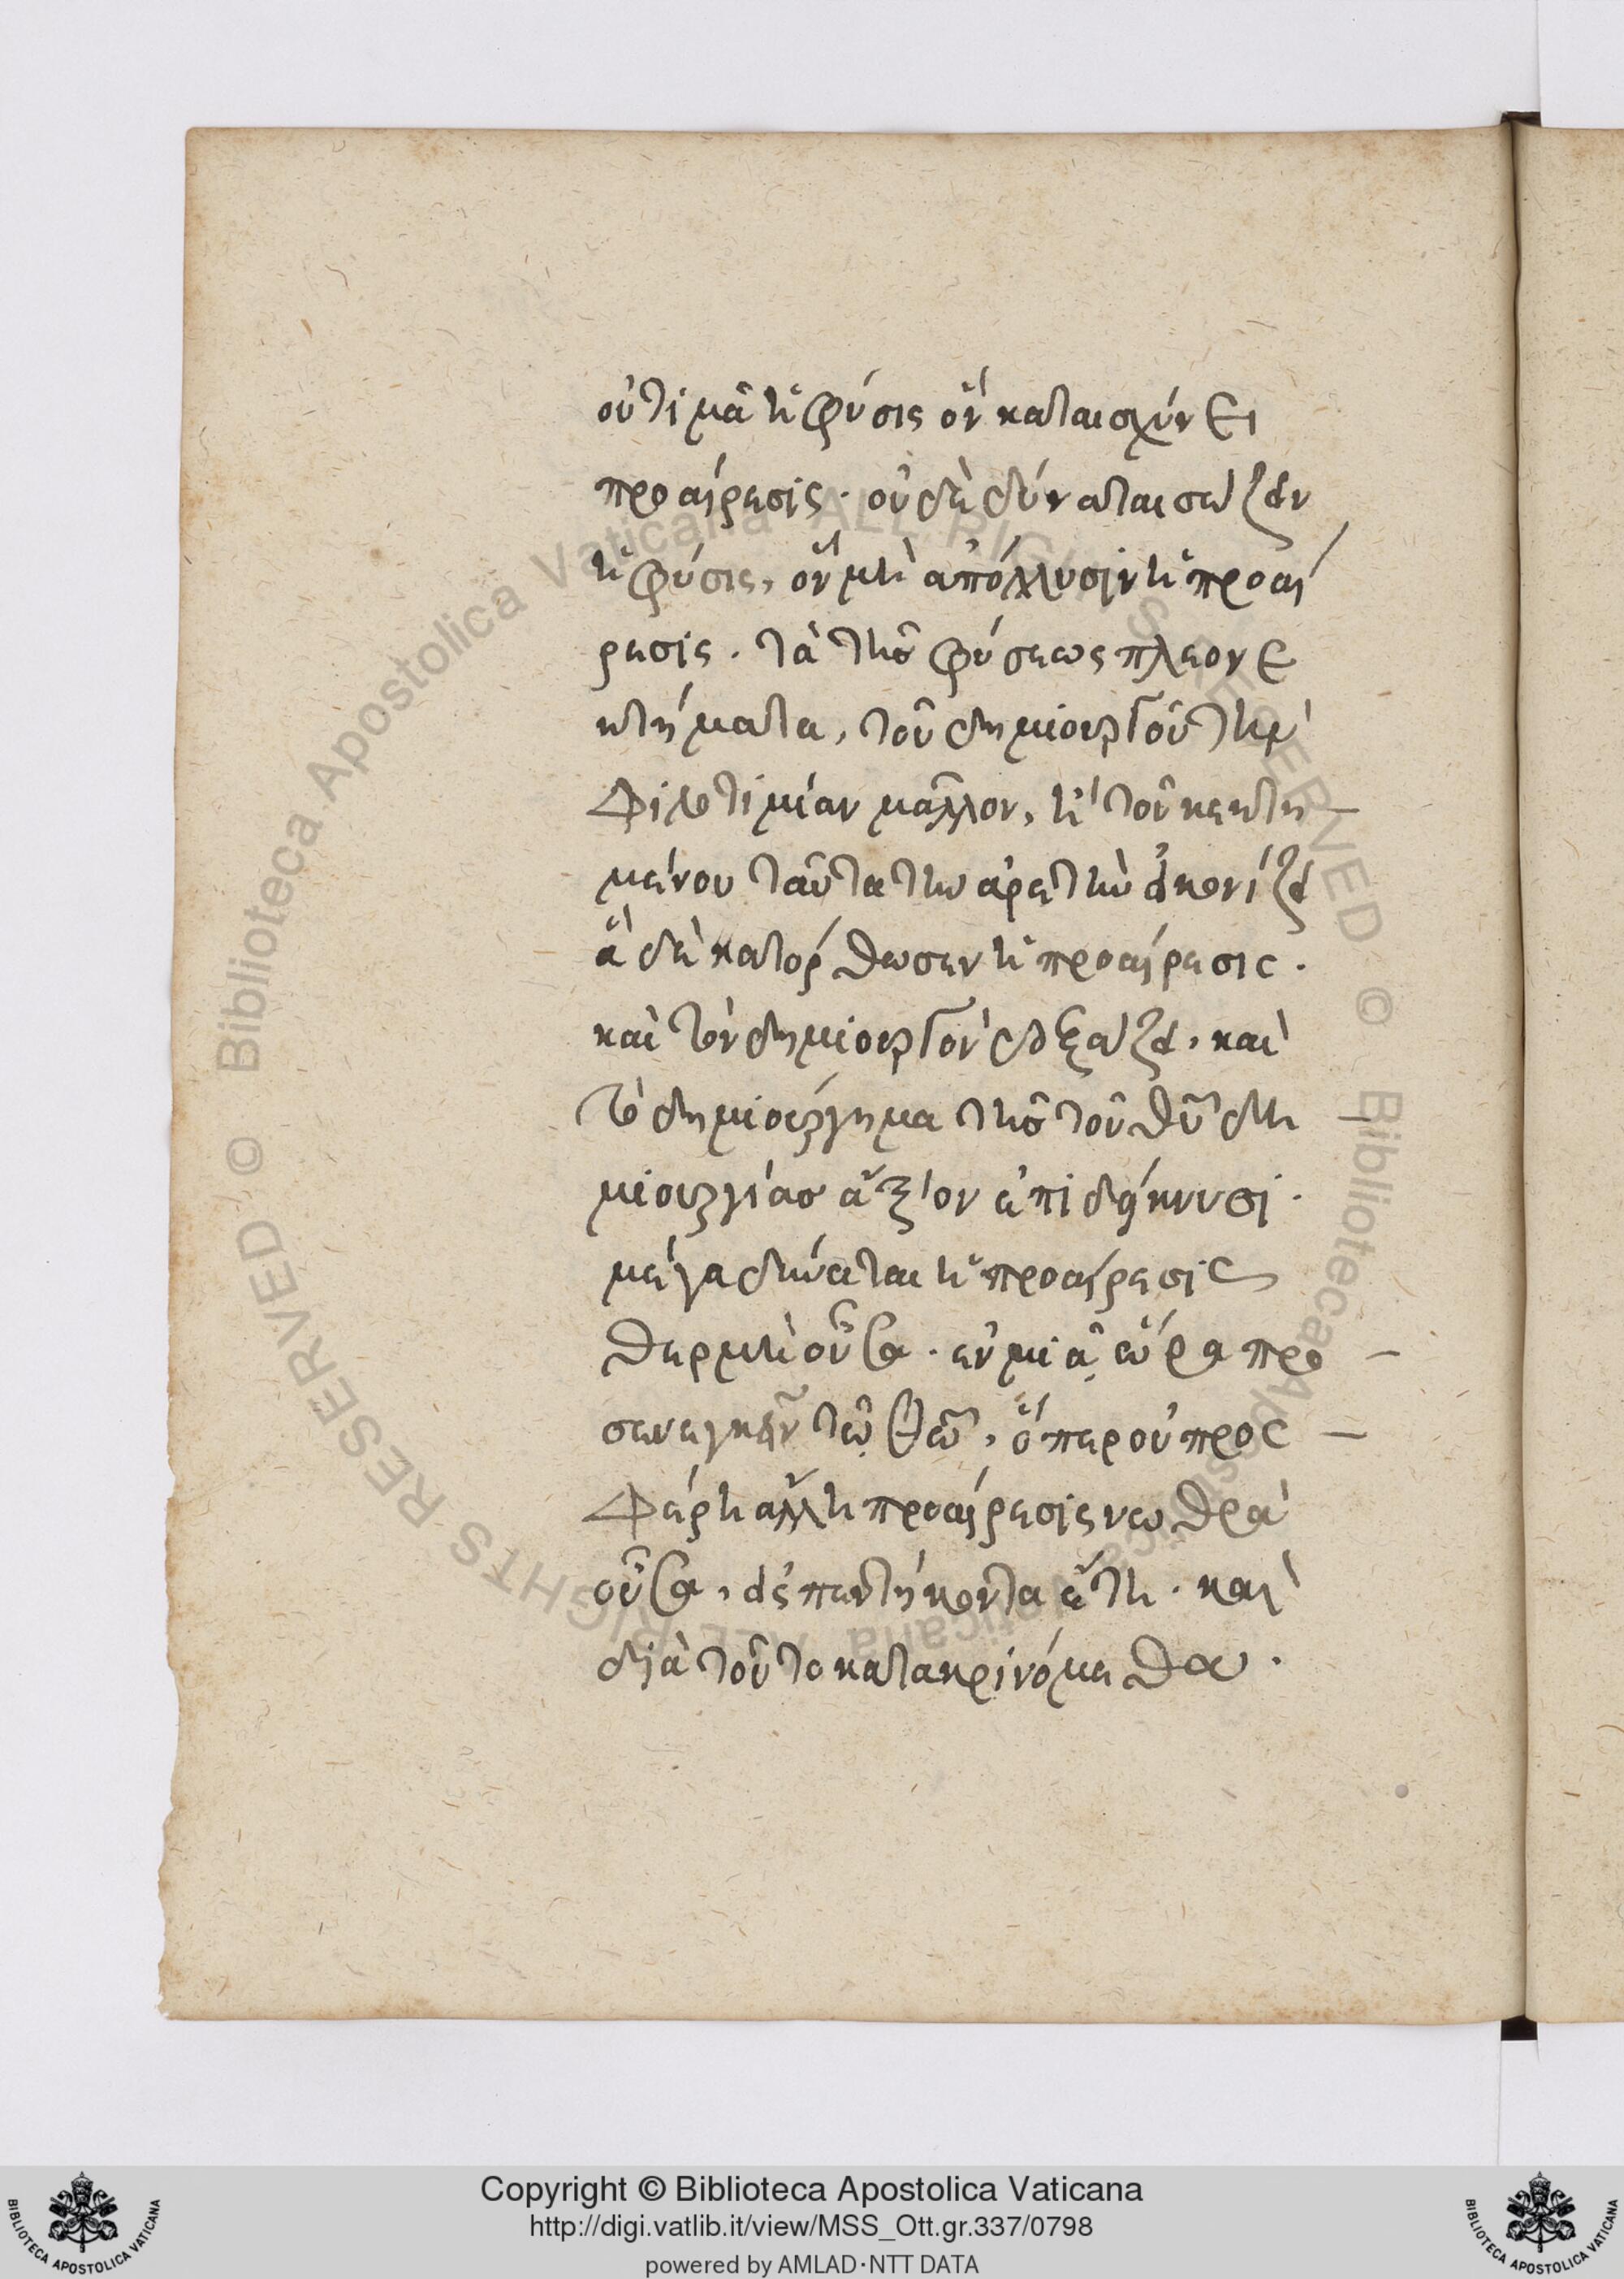 οὐ τιμᾶ ἡ φύσις ὃν καταισχύνει
προαίρεσις. οὐδὲ δύναται σώζειν
ἡ φύσις, ὃν μὴ ἀπόλλυσιν ἡ προαί
ρεσις. τὰ τῆς φύσεως πλεονε
κτήματα, τοῦ δημιουργοῦ τὴν
φιλοτιμίαν μᾶλλον, ἢ τοῦ κεκτη
μένου ταῦτα τὴν ἀρετὴν εἰκονίζει
ἃ δὲ κατόρθωσεν ἡ προαίρεσις.
καὶ τὸν δημιουργὸν δοξάζει, καὶ
τὸ δημιούργημα τῆς τοῦ θῦ δη
μιουργίας ἄξιον ἐπιδείκνυσι.
μέγα δύναται ἡ προαίρεσις
θερμὴ οὖσα. ἐν μιᾷ ὥρα προ
σενεγκεῖν τῶ θῶ, ὅπερ οὐ προς
φέρη ἄλλη προαίρεσις νωθρὰ
οὖσα, εἰς πεντήκοντα ἔτη. καὶ
διὰ τοῦτο κατακρινόμεθα.
Copyright © Biblioteca Apostolica Vaticana
http://digi.vatlib.it/view/MSS_Ott.gr.337/0798
powered by AMLAD·NTT DATA
BIBLIOTECA APOSTOLICA VATICANA
BIBLIOTECA APOSTOLICA VATICANA
© Biblioteca Apostolica Vaticana ALL RIGHTS RESERVED © Biblioteca Apostolica Vaticana ALL RIGHTS RESERVED